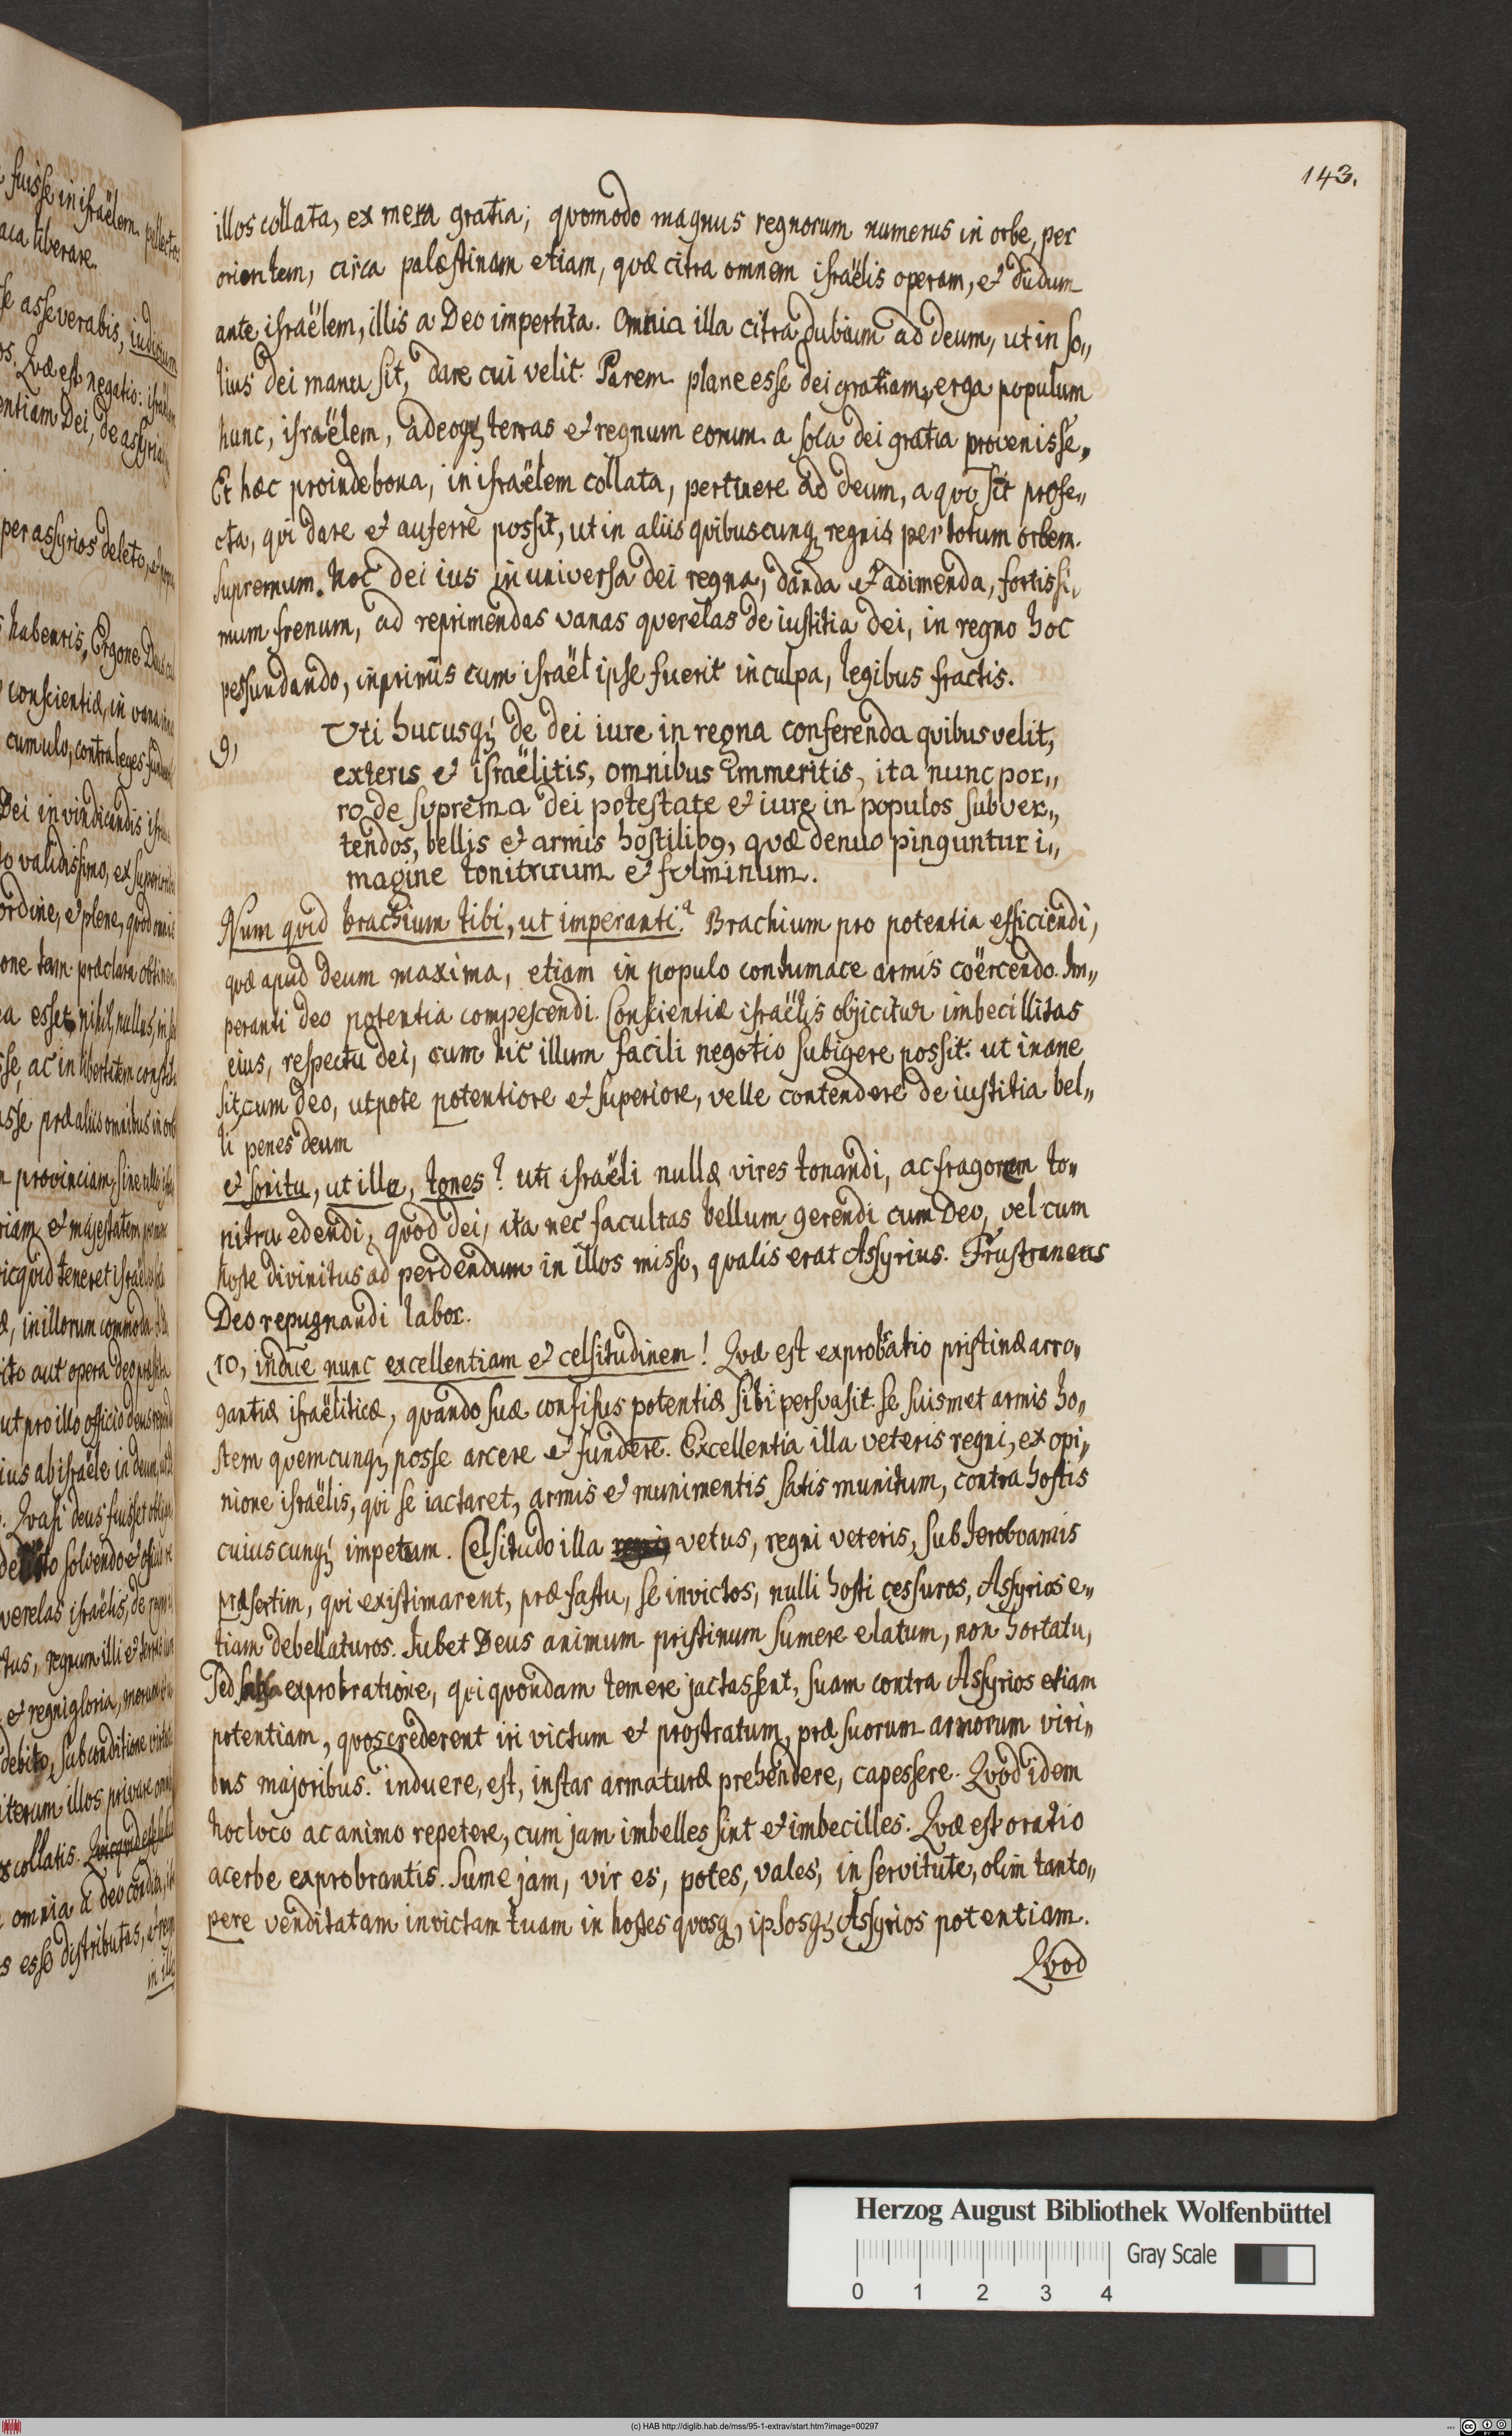 143.
illos collata, ex mera gratia; quomodo magnus regnorum numerus in orbe, per
orientem, circa palæstinam etiam, quæ citra omnem israëlis operam, et dudum
ante israëlem, illis a Deo impertita. Omnia illa citra dubium ad deum, ut in so„
lius dei manu sit, dare cui velit. Parem plane esse dei gratiam, erga populum
hunc, israëlem, adeoqꝫ terras et regnum eorum a sola dei gratia provenisse„
Et hæc proinde bona, in israëlem collata, pertinere ad deum, a quo sit profe„
cta, qui dare et auferre possit, ut in aliis quibuscunqꝫ regnis per totum orbem.
supremum. hoc dei ius in universa dei regna, danda et adimenda, fortissi„
mum frenum, ad reprimendas vanas querelas de iustitia dei, in regno hoc
pessundando, inprimis cum israël ipse fuerit in culpa, legibus fractis.
9, Uti hucusqꝫ de dei iure in regna conferenda quibus velit,
exteris et israëlitis, omnibus immeritis, ita nunc por„
ro de suprema dei potestate et iure in populos subver„
tendos, bellis et armis hostilibꝰ, quæ denuo pinguntur i„
magine tonitruum et fulminum.
Num quid brachium tibi, ut imperanti? Brachium pro potentia efficiendi,
quæ apud deum maxima, etiam in populo contumace armis coërcendo. Im„
peranti deo potentia compescendi. Conscientiæ israëlis objicitur imbecillitas
eius, respectu dei, cum hic illum facili negotio subigere possit. ut inane
sit, cum deo, utpote potentiore et superiore, velle contendere de iustitia bel„
li penes deum
et sonitu, ut ille, tones? uti israëli nullæ vires tonandi, ac fragorem to„
nitru edendi, quod dei, ita nec facultas bellum gerendi cum Deo, vel cum
hoste divinitus ad perdendum in illos misso, qualis erat Assyrius. Frustraneus
Deo repugnandi labor.
10, indue nunc excellentiam et celsitudinem! Quæ est exprobratio pristinæ arro„
gantiæ israëliticæ, quando suæ confisus potentiæ sibi persvasit se suismet armis ho„
stem quemcunqꝫ posse arcere et fundere. Excellentia illa veteris regni, ex opi„
nione israëlis, qui se iactaret, armis et munimentis satis munitum, contra hostis
cuiuscunqꝫ impetum. Celsitudo illa regni vetus, regni veteris, sub Jeroboamis
præsertim, qui existimarent, præ fastu, se invictos, nulli hosti cessuros, Assyrios e„
tiam debellaturos. Jubet Deus animum pristinum sumere elatum, non hortatu,
sed exprobratione, qui quondam temere jactassent, suam contra Assyrios etiam
potentiam, quos crederent iri victum et prostratum, præ suorum armorum viri„
bus majoribus. induere, est, instar armaturæ prehendere, capessere. Quod idem
hoc loco ac animo repetere, cum jam imbelles sint et imbecilles. Quæ est oratio
acerbe exprobrantis. Sume jam, vir es, potes, vales, in servitute, olim tanto„
pere venditatam invictam tuam in hostes quosqꝫ, ipsosqꝫ Assyrios potentiam.
Quod
Herzog August Bibliothek Wolfenbüttel
Gray Scale
0 1 2 3 4
(c) HAB http://diglib.hab.de/mss/95-1-extrav/start.htm?image=00297